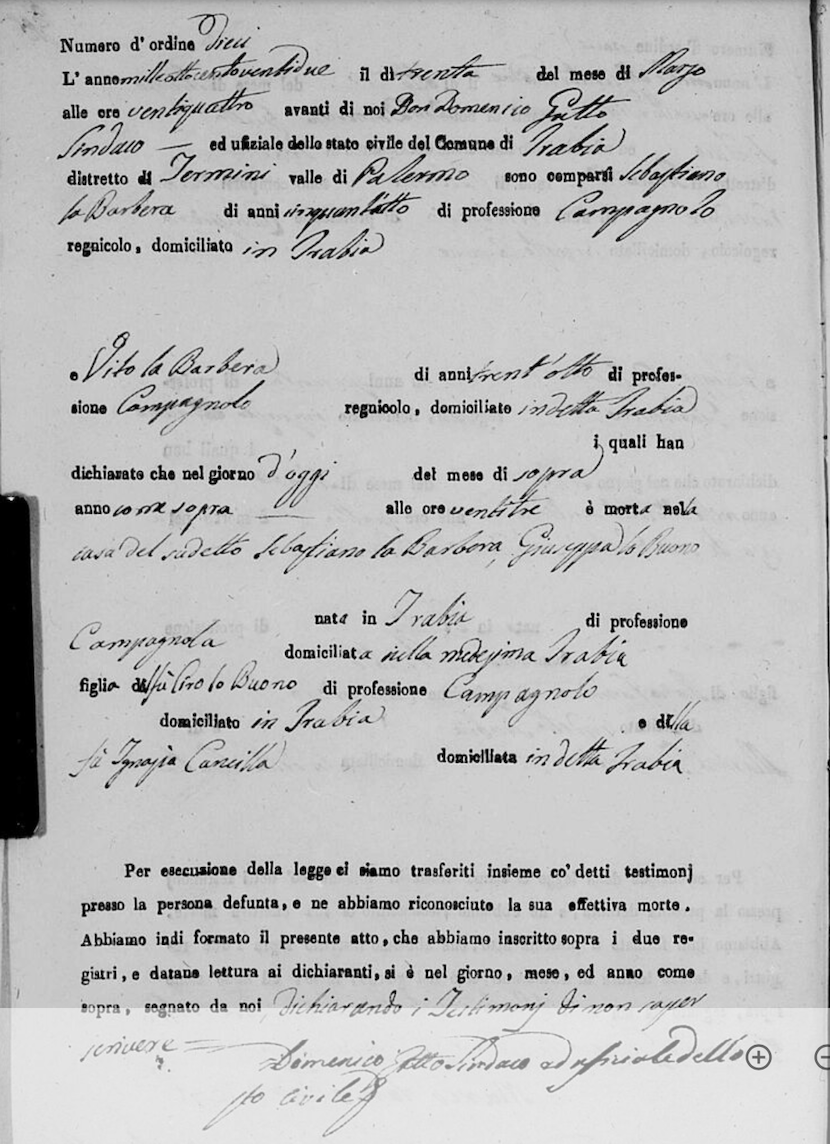 Numero d' ordine Dieci
L' anno mille ottocento ventidue il di trenta del mese di Marzo
alle ore ventiquattro avanti di noi Don Domenico Gatto
Sindaco — ed ufiziale dello stato civile del Comune di Trabia
distretto di Termini valle di Palermo sono comparsi Sebastiano
la Barbera di anni cinquant'otto di professione Campagnolo
regnicolo, domiciliato in Trabia
e Vito la Barbera di anni trent'otto di profes-
sione Campagnolo regnicolo, domiciliato in detta Trabia
i quali han
dichiarato che nel giorno d'oggi del mese di sopra
anno come sopra — alle ore ventitre è morta nela
casa del sudetto Sebastiano la Barbera, Giuseppa lo Buono
nata in Trabia di professione
Campagnola domiciliata nella medesima Trabia
figlia di fù Ciro lo Buono di professione Campagnolo
domiciliato in Trabia e della
fù Ignazia Cancilla domiciliata in detta Trabia
Per esecuzione della legge ci siamo trasferiti insieme co' detti testimonj
presso la persona defunta, e ne abbiamo riconosciuto la sua effettiva morte.
Abbiamo indi formato il presente atto, che abbiamo inscritto sopra i due re-
gistri, e datane lettura ai dichiaranti, si è nel giorno, mese, ed anno come
sopra, segnato da noi dichiarando i Testimonj di non saper
scrivere =
Domenico Gatto Sindaco ed uficiale dello
sto civile